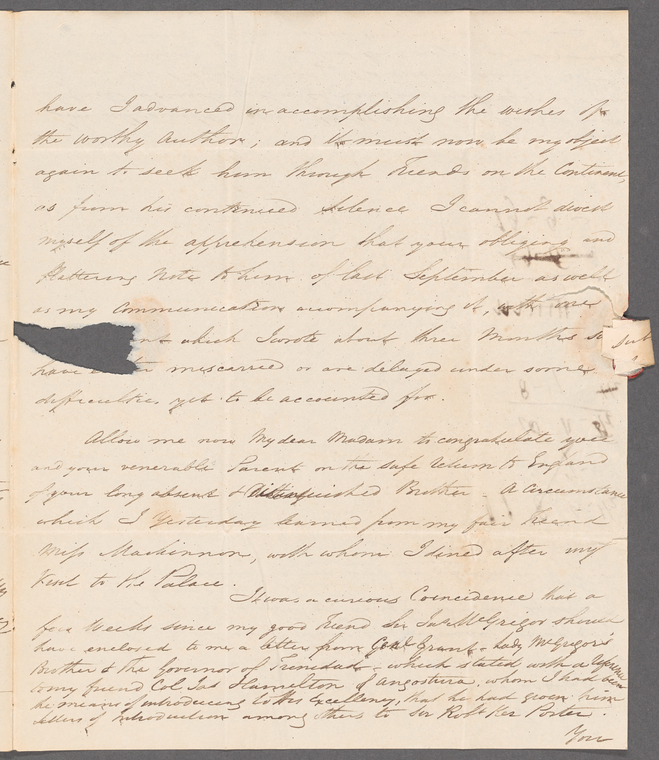 have I advanced in accomplishing the wishes of
the worthy Author; and it must now be my object
again to seek him through Friends on the Continent,
as from his continued silence I cannot divest
myself of the apprehension that your obliging and
flattering Note to him of last September as well
as my Communication accompanying it, with one
which I wrote about three Months
have miscarried or are delayed under some
difficulties yet to be accounted for.
Allow me now My dear Madam to congratulate you
and your venerable Parent on the safe return to England
of your long absent & distinguished Brother - A Circumstance
which I Yesterday learned from my fair Friend
Miss Mackinnon, with whom I dined after my
Visit to the Palace.
It was a curious Coincidence that a
few Weeks since my good Friend Sir Jas McGrigor should
have enclosed to me a letter from Genl Grant - Lady McGrigor's
Brother & the Governor of Trinidad - which stated with a
to my friend Col Jas Hamilton of Angostura, whom I had been
the means of introducing to His Excellency, that he had given him
letters of introduction among others to Sir Robt Ker Porter.
You